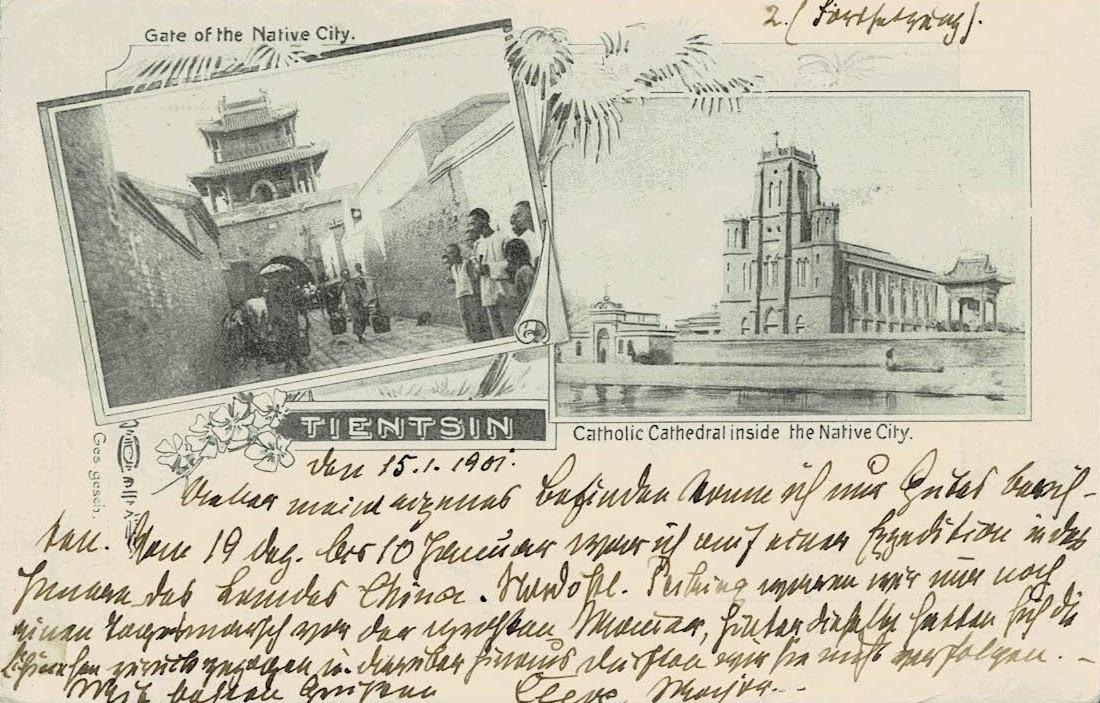 2. (Fortsetzung).
Gate of the Native City.
TIENTSIN
Catholic Cathedral inside the Native City.
Ges. gesch.
den 15.1.1901.
Ueber mein eigenes Befinden kann ich nur Gutes berich-
ten. Vom 19 Dez. bis 10 Januar war ich auf einer Expedition in das
Innere des Landes China. Nordöstl. Peking waren wir nur noch
einen Tagesmarsch von der großen Mauer, hinter dieselbe hatten sich die
Chinesen zurückgezogen u. darüber hinaus durften wir sie nicht verfolgen. -
Mit besten Grüßen